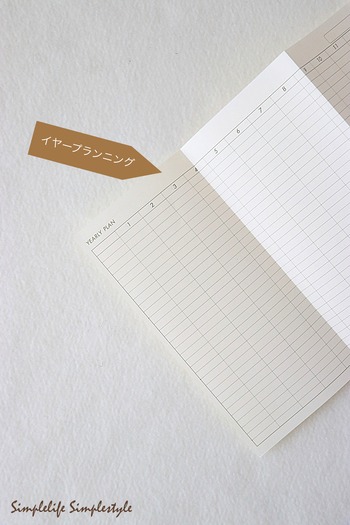 イヤープランニング
YEARLY PLAN
1 2 3 4 5 6 7 8 9 10 11
Simplelife Simplestyle